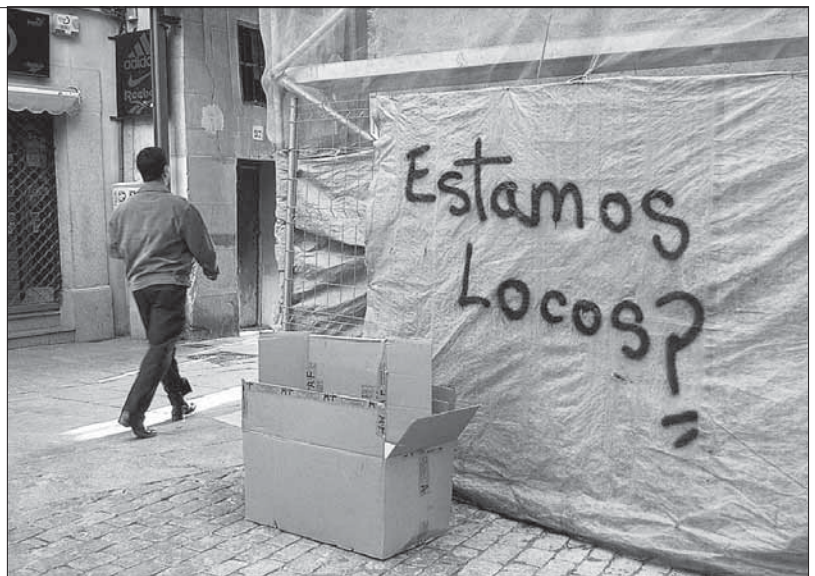 adidas
Reebok
Estamos
Locos?